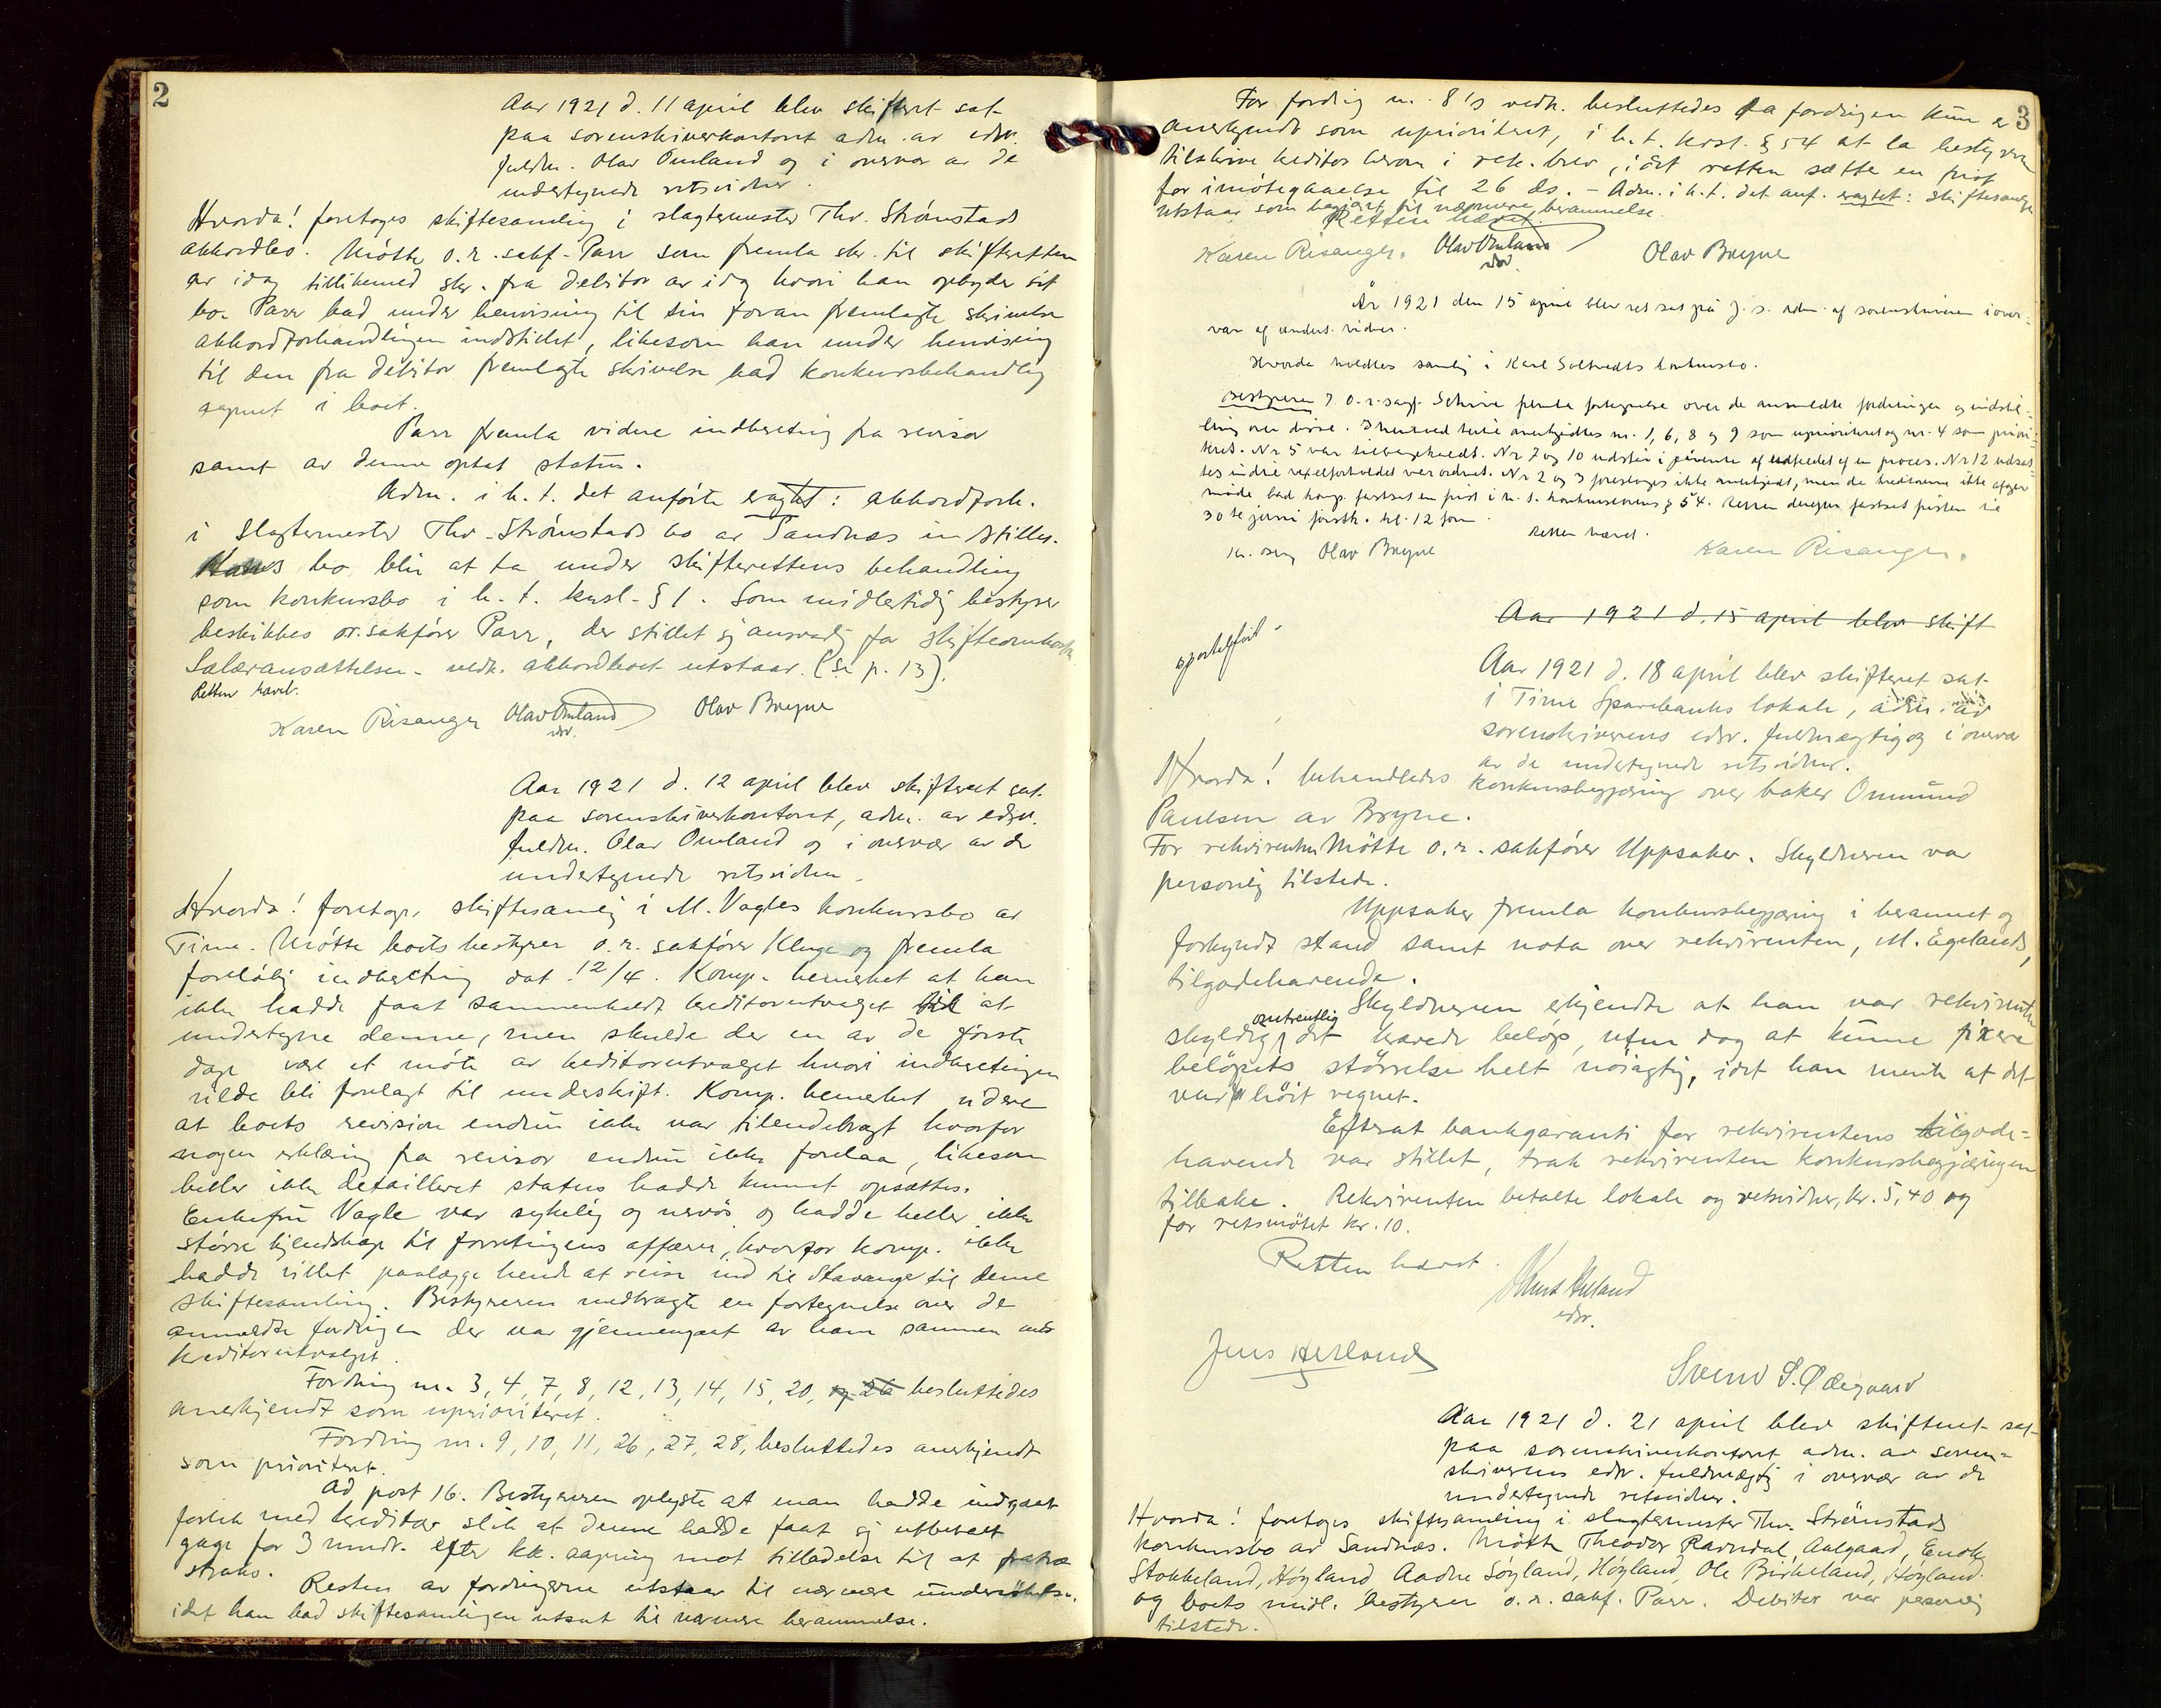 2
Aar 1921 d. 11 april blev skifteret sat
paa sorenskriverkontoret adm. av edsv.
fuldm. Olav Omland og i overvær av de
undertegnede retsvidner.
Hvorda! foretoges skiftesamling i slagtermester Thv. Strømstads
akkordbo. Møtte o.r.sakf. Parr som fremla skr. til skifteretten
av idag tillikemed skr. fra debitor av idag hvori han opbyder sit
bo. Parr bad under henvisning til sin foran fremlagte skrivelse
akkordforhandlingen indstillet, likesom han under henvisning
til den fra debitor fremlagte skrivelse bad konkursbehandling
aapnet i boet.
Parr fremla videre indberetning fra revisor
samt av denne optat status.
Adm. i h. t. det anførte eragtet: akkordforh.
i slagtermester Thv. Strømstads bo av Sandnes indstilles.
Hans bo blir at ta under skifterettens behandling
som konkursbo i h. t. kksl. § 1. Som midlertidig bestyrer
beskikkes or.sakfører Parr, der stillet sig ansvarlig for skifteomkostn.
Salæransættelsen vedk. akkordboet utstaar. (se p. 13).
Retten hævet.
Karen Risanger Olav Omland Olav Bryne
edsv.
Aar 1921 d. 12 april blev skifteret sat
paa sorenskriverkontoret, adm. av edsv.
fuldm. Olav Omland og i overvær av de
undertegnede retsvidner.
Hvorda! foretoges skiftesamling i M. Vagles konkursbo av
Time. Møtte boets bestyrer o.r. sakfører Kluge og fremla
foreløbig indberetning dat. 12/4. Komp. bemerket at han
ikke hadde faat sammenkaldt kreditorutvalget til at
undertegne denne, men skulde der en av de første
dage være et møte av kreditorutvalget hvori indberetningen
vilde bli forelagt til underskrift. Komp. bemerket videre
at boets revision endnu ikke var tilendebragt hvorfor
nogen erklæring fra revisor endnu ikke forelaa, likesom
heller ikke detailleret status hadde kunnet opsættes.
Enkefru Vagle var sykelig og nervøs og hadde heller ikke
større kjendskap til forretningens affærer, hvorfor komp. ikke
hadde villet paalægge hende at reise ind til Stavanger til denne
skiftesamling. Bestyreren medbragte en fortegnelse over de
anmeldte fordringer der var gjennemgaat av ham sammen med
kreditorutvalget.
Fordring nr. 3, 4, 7, 8, 12, 13, 14, 15, 20, og 26 besluttedes
anerkjendt som uprioritert.
Fordring nr. 9, 10, 11, 26, 27, 28, besluttedes anerkjendt
som prioriteret.
Ad post 16. Bestyreren oplyste at man hadde indgaat
forlik med kreditor slik at denne hadde faat sig utbetalt
gage for 3 mndr. efter kk. aapning mot tilladelse til at fratræ
straks.
Resten av fordringerne utstaar til nærmere undersøkelse,
idet han bad skiftesamlingen utsat til nærmere berammelse.
3
For fordring nr. 8's vedk. besluttedes da fordringen kun er
anerkjendt som uprioritert, i h. t. kksl. § 54 at la bestyreren
tilskrive kreditor herom i rek. brev, idet retten sætte en frist
for imøtegaaelse til 26 ds. – Adm. i h. t. det anf. eragtet: skiftesamlingen
utstaar som begjært til nærmere berammelse.
Retten hævet
Karen Risanger. Olav Omland Olav Bryne
edsv.
År 1921 den 15 april blev ret sat på J. s. adm. af sorenskriveren i over-
vær af undert. vidner.
Hvorda holdtes samling i Karl Soltvedts konkursbo.
Bestyreren o.r.sagf. Schive fremla fortegnelse over de anmeldte fordringer og indstil-
ling over disse. I henhold hertil anerkjendtes nr. 1, 6, 8 og 9 som uprioriteret og nr. 4 som priori-
teret. Nr 5 var tilbakekaldt. Nr 7 og 10 utstår i påvente af udfaldet af en proces. Nr 12 udsat-
tes indtil vexelforholdet var ordnet. Nr 2 og 3 foresloges ikke anerkjendt, men da kreditorene ikke
møde bad komp. fastsat en frist i h. t. konkurslovens § 54. Retten derefter fastsat fristen til
30te juni førstk. kl. 12 form.
Retten hævet.
Olav Bryne Karen Risanger.
Aar 1921 d. 15 april blev skift
sportelfrit
Aar 1921 d. 18 april blev skifteret sat
i Time Sparebanks lokale, adm. av
sorenskriverens edsv. fuldmægtig og i overvær
av de undertegnede retsvidner.
Hvorda! behandledes konkursbegjæring over baker Ommund
Paulsen av Bryne.
For rekvirenten Møtte o.r. sakfører Uppsaker. Skyldneren var
personlig tilstede.
Uppsaker fremla konkursbegjæring i berammet og
forkyndt stand samt nota over rekvirenten, M. Egelands,
tilgodehavende.
Skyldneren erkjendte at han var rekvirenten
skyldig omtrentlig det krævede beløp, uten dog at kunne fixere
beløpets størrelse helt nøiagtig, idet han mente at det
var for høit regnet.
Efterat bankgaranti for rekvirentens tilgode-
havende var stillet, trak rekvirenten konkursbegjæringen
tilbake. Rekvirenten betalte lokale og retsvidner, kr. 5,40 og
for retsmøtet kr. 10.
Retten hævet.
edsv.
Jens Herland
Svend S. Ødegaard
Aar 1921 d. 21 april blev skifteret sat
paa sorenskriverkontoret adm. av soren-
skriverens edsv. fuldmægtig i overvær av de
undertegnede retsvidner.
Hvorda! foretoges skiftesamling i slagtermester Thv. Strømstads
konkursbo av Sandnes. Møtte Theodor Ravndal, Aalgaard, Endre
Stokkeland, Høyland Aadne Søyland, Høyland, Ole Birkeland, Høyland
og boets midl. bestyrer o.r. sakf. Parr. Debitor var personlig
tilstede.